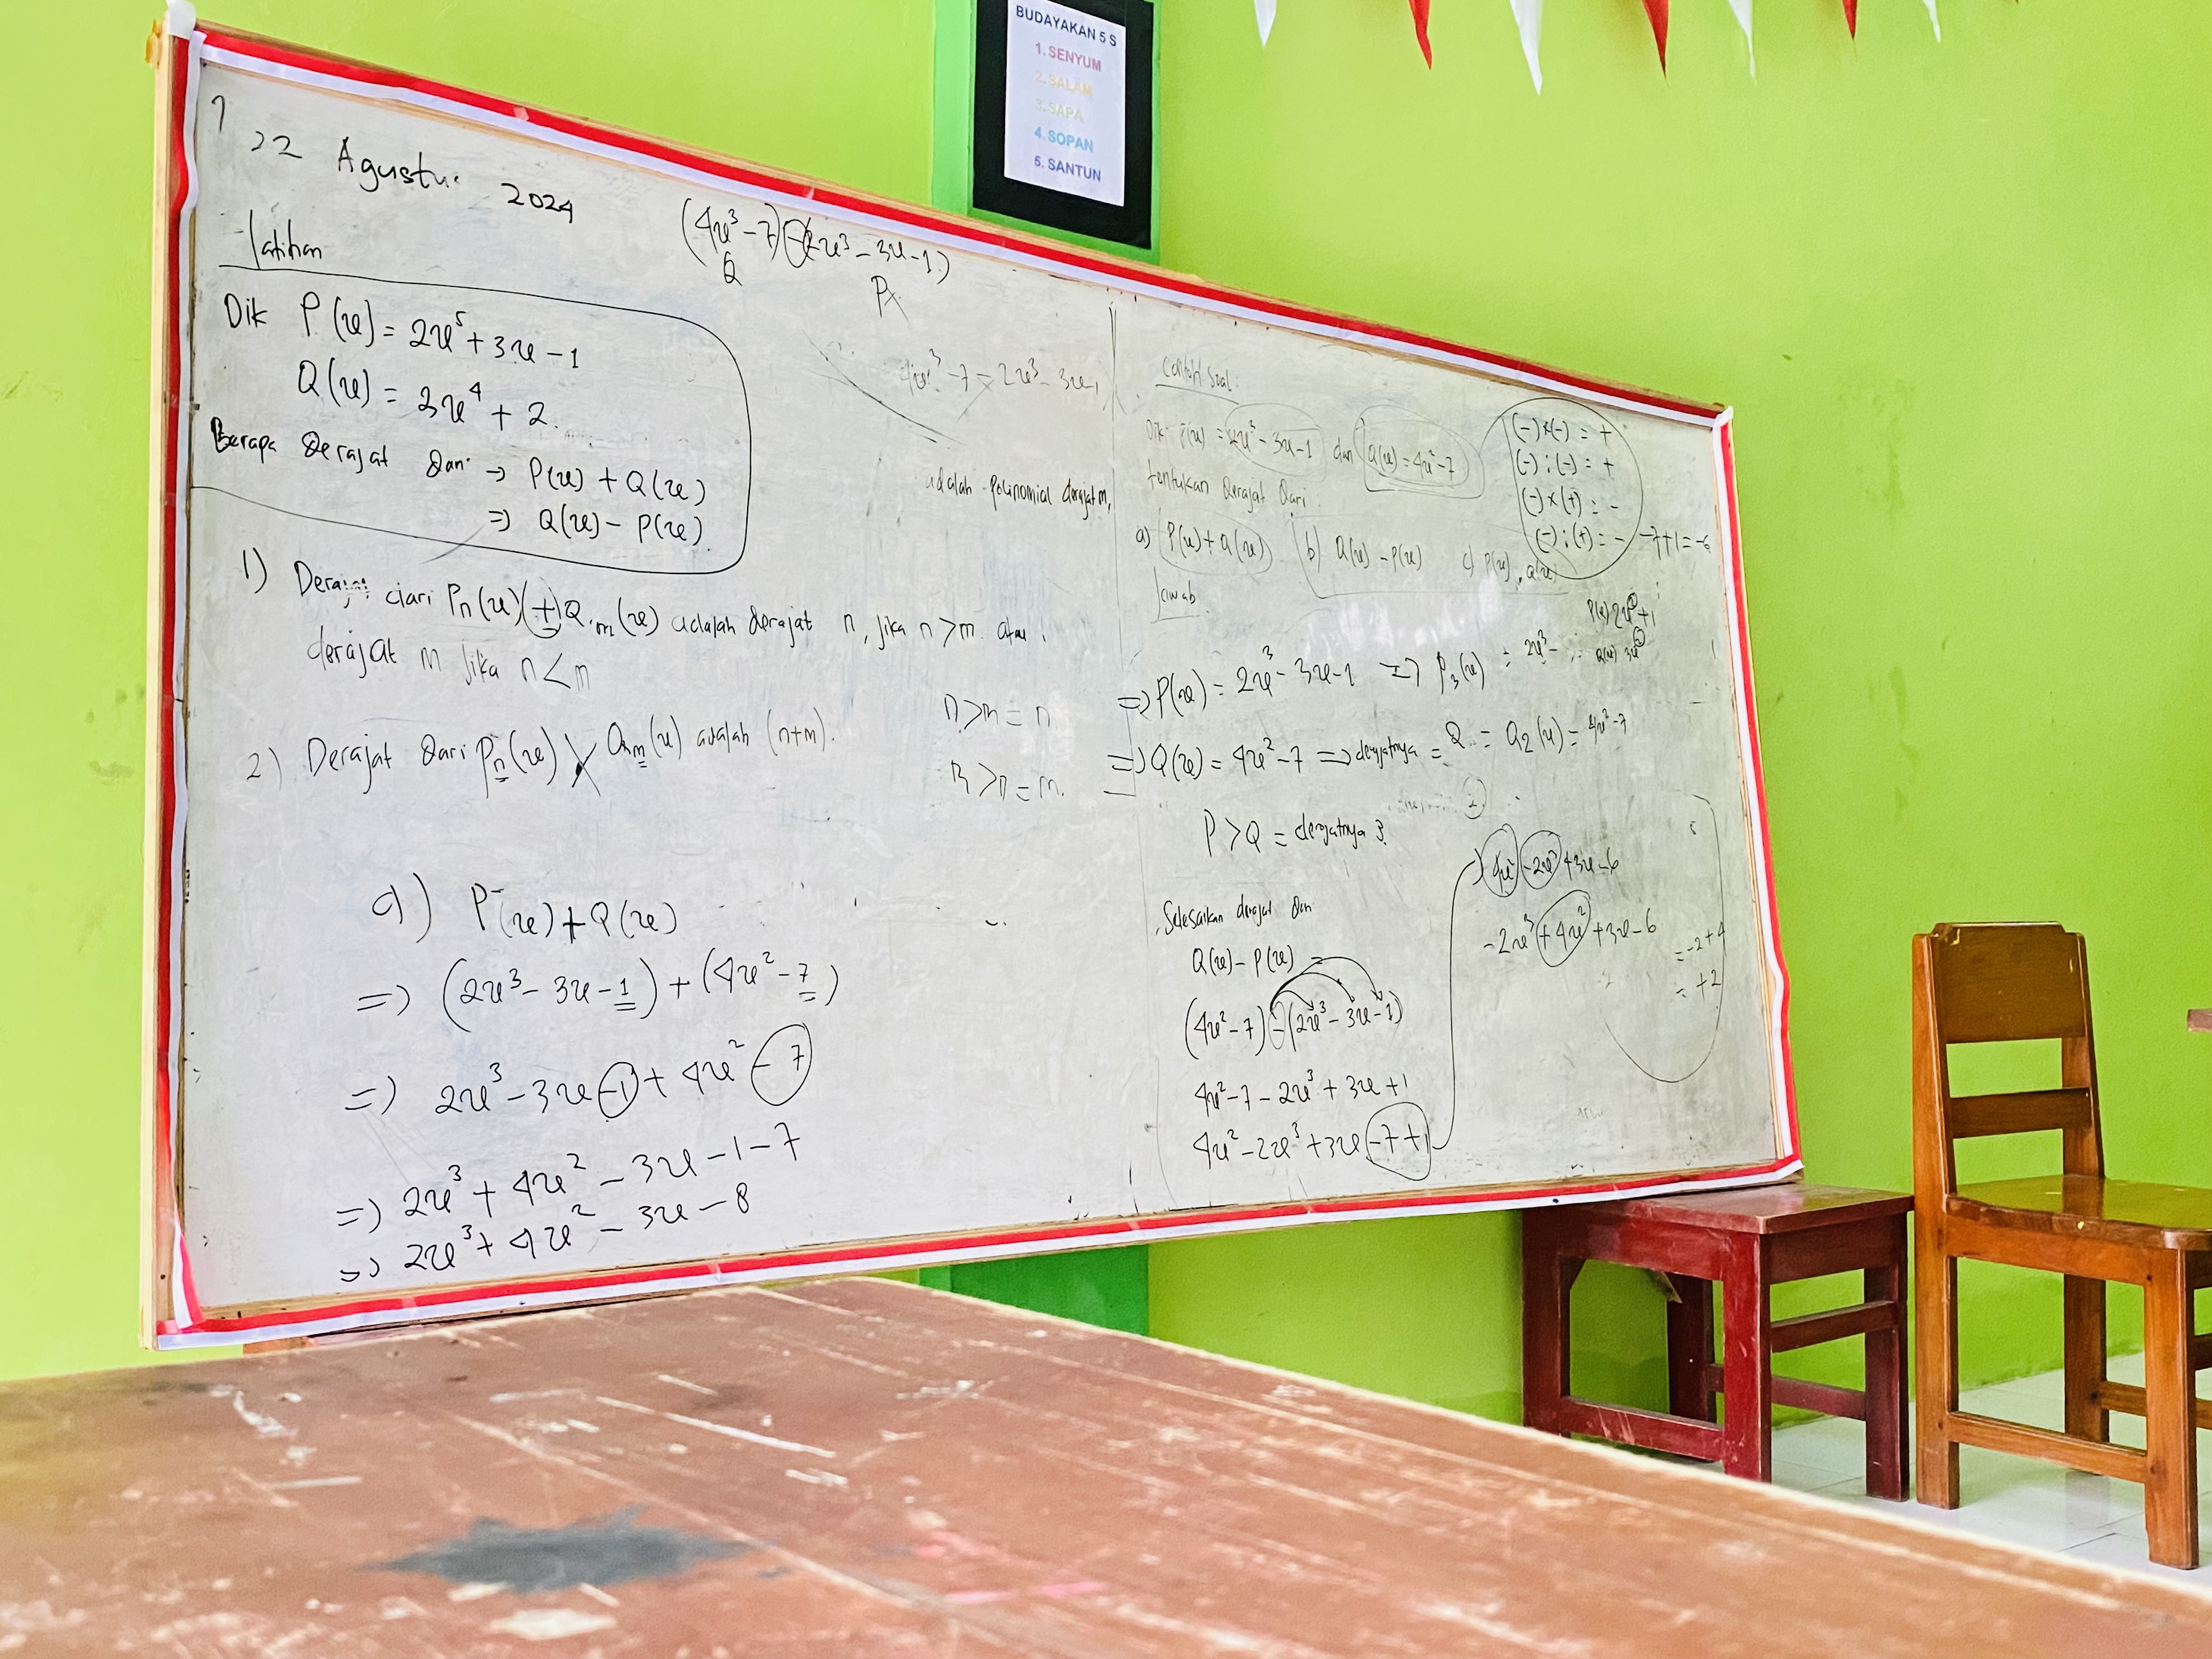 BUDAYAKAN 5 S
1. SENYUM
2. SALAM
3. SAPA
4. SOPAN
5. SANTUN
22 Agustus 2024
latihan
(4x³ - 7) - (2x³ - 3x - 1)
Q
P
Dik P(x) = 2x⁵ + 3x - 1
Q(x) = 3x⁴ + 2
Berapa derajat dari → P(x) + Q(x)
⇒ Q(x) - P(x)
1) Derajat dari Pn(x) ± Qm(x) adalah derajat n, jika n > m atau
derajat m jika n < m
2) Derajat dari Pn(x) × Qm(x) adalah (n+m).
n > m = n
m > n = m
a) P(x) + Q(x)
⇒ (2x³ - 3x - 1) + (4x² - 7)
⇒ 2x³ - 3x - 1 + 4x² - 7
⇒ 2x³ + 4x² - 3x - 1 - 7
⇒ 2x³ + 4x² - 3x - 8
4x³ - 7 - 2x³ - 3x - 1
adalah polinomial derajat m,
Contoh Soal:
Dik: P(x) = 2x³ - 3x - 1 dan Q(x) = 4x² - 7
tentukan derajat dari
a) P(x) + Q(x) b) Q(x) - P(x) c) P(x) . Q(x)
Jawab
(-) × (-) = +
(-) : (-) = +
(-) × (+) = -
(-) : (+) = -
-7+1 = -6
P(x) 2x +1
Q(x) 3x
⇒ P(x) = 2x³ - 3x - 1 ⇒ P₃(x) = 2x³ -
⇒ Q(x) = 4x² - 7 ⇒ derajatnya = 2 = Q₂(x) = 4x² - 7
P > Q = derajatnya 3
Selesaikan derajat dari
Q(x) - P(x) =
(4x² - 7) - (2x³ - 3x - 1)
4x² - 7 - 2x³ + 3x + 1
4x² - 2x³ + 3x - 7 + 1
4x² - 2x³ + 3x - 6
-2x³ + 4x² + 3x - 6
= -2 + 4
= +2